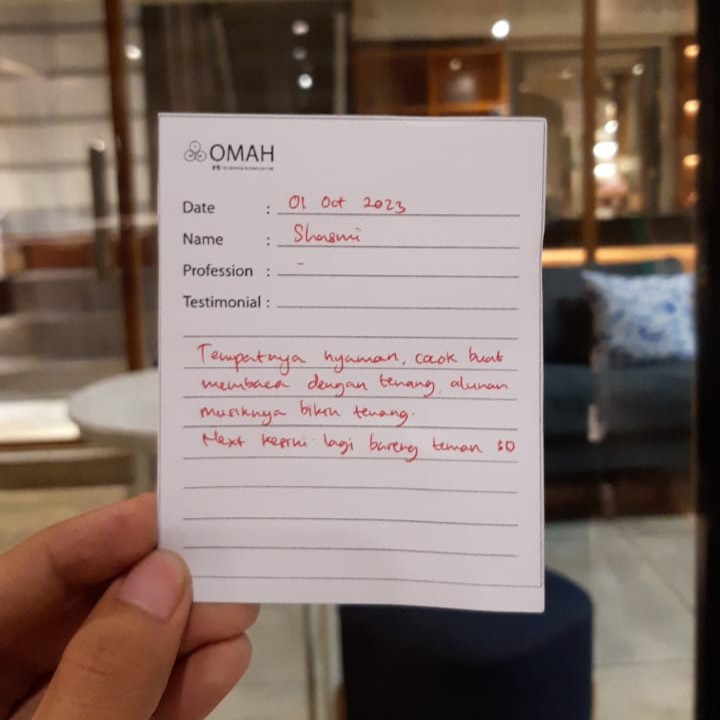 OMAH
Date : 01 Oct 2023
Name : Shasmi
Profession : -
Testimonial :
Tempatnya nyaman, cocok buat
membaca dengan tenang, alunan
musiknya bikin tenang.
Next kesini lagi bareng teman :D